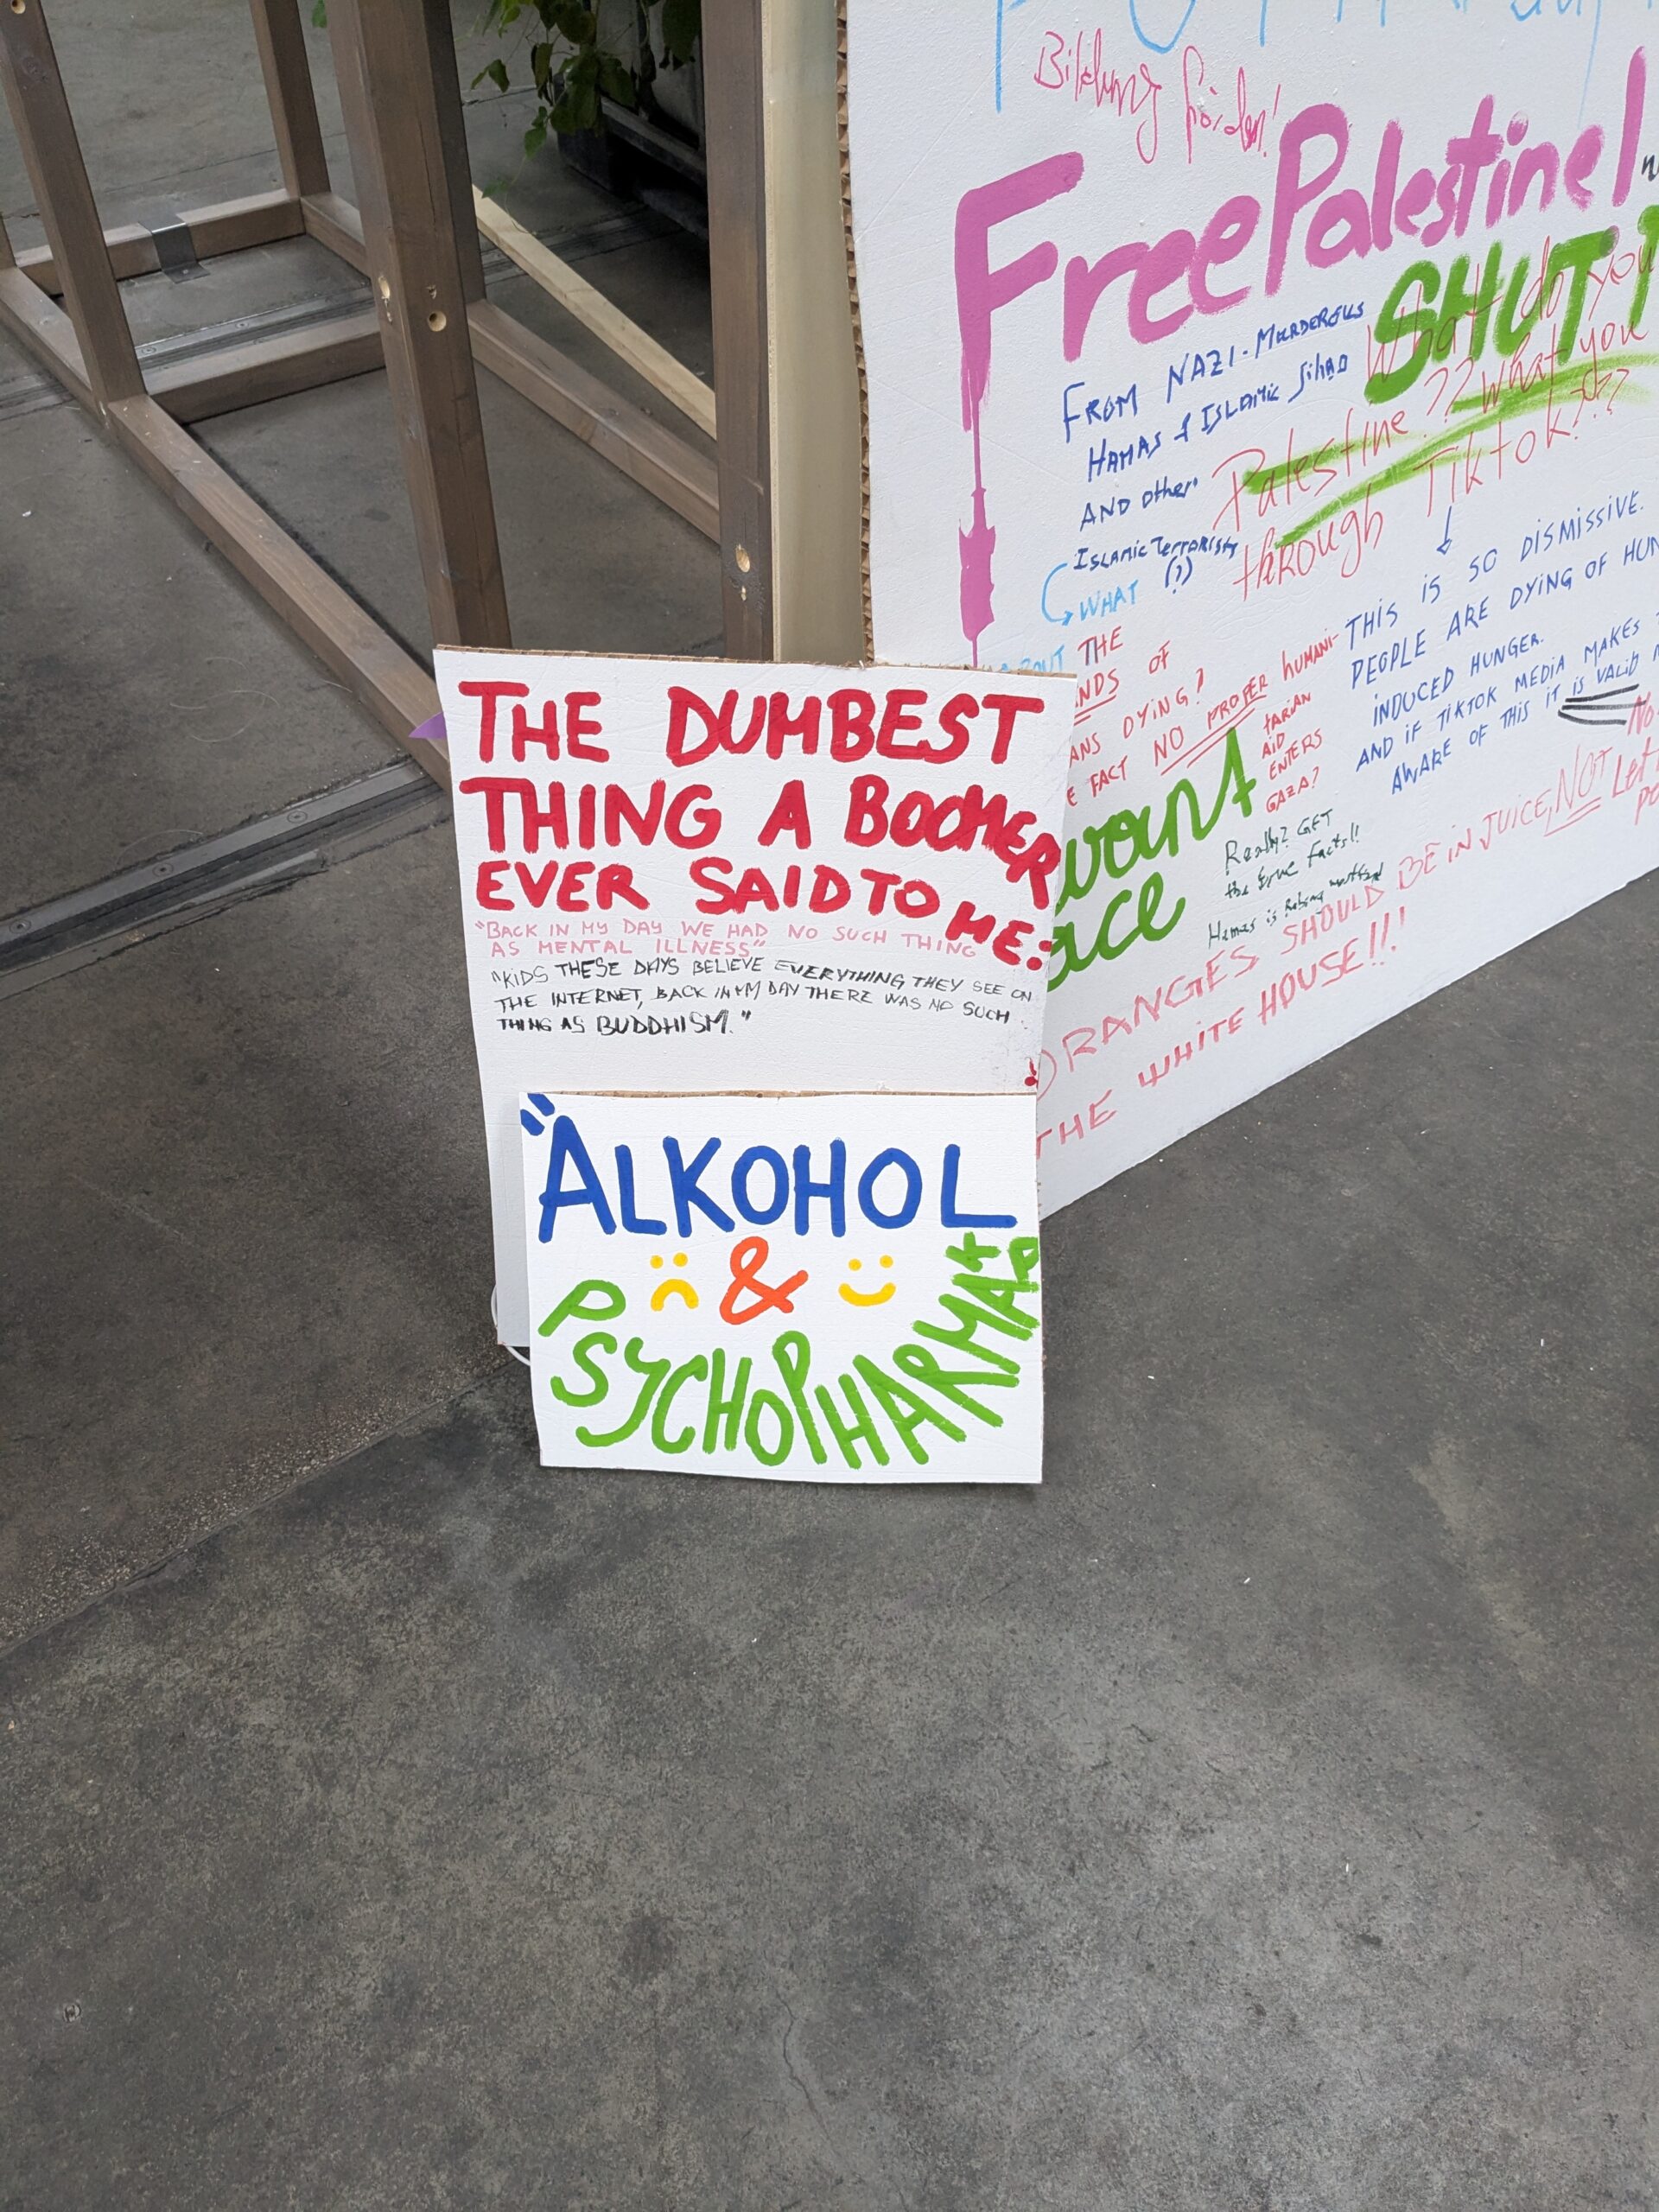 Bildung
Free Palestine!
SHUT
FROM NAZI-MURDEROUS
HAMAS & ISLAMIC JIHAD
AND other
ISLAMIC TERRORISTS
(?)
What do you
Palestine?? what you
through Tiktok???
WHAT
THE
OF
DYING?
FACT NO PROPER HUMANI-
TARIAN
AID
ENTERS
GAZA?
THIS IS SO DISMISSIVE.
PEOPLE ARE DYING OF
INDUCED HUNGER.
AND IF TIKTOK MEDIA MAKES
AWARE OF THIS IT IS VALID
want
Really? GET
the true facts!!
Hamas is
ORANGES SHOULD BE IN JUICE, NOT
THE WHITE HOUSE!!!
THE DUMBEST
THING A BOOMER
EVER SAID TO ME:
"BACK IN MY DAY WE HAD NO SUCH THING
AS MENTAL ILLNESS"
"KIDS THESE DAYS BELIEVE EVERYTHING THEY SEE ON
THE INTERNET, BACK IN MY DAY THERE WAS NO SUCH
THING AS BUDDHISM."
"ALKOHOL
&
PSYCHOPHARMAKA